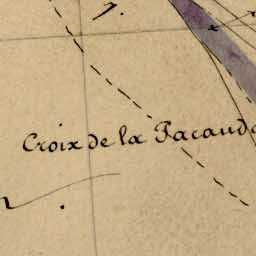 7.
Croix de la Pacaud